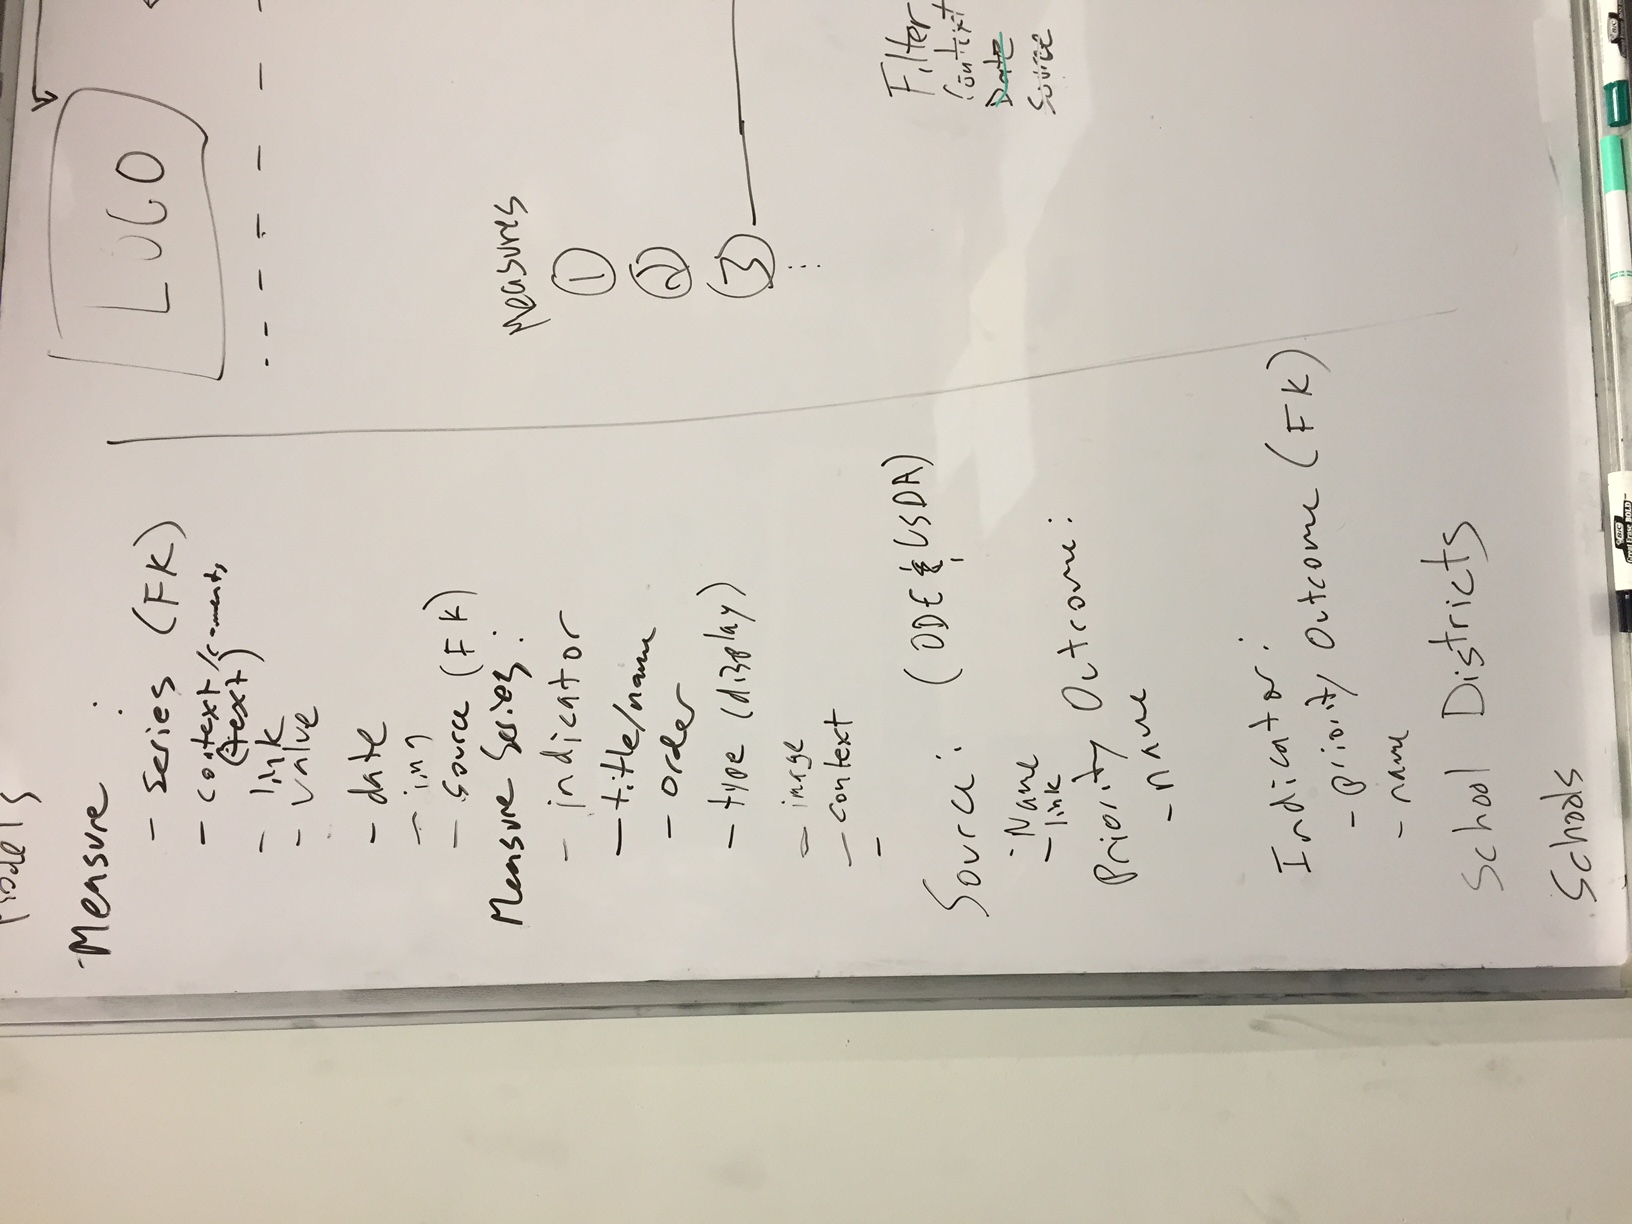 Models
- Measure :
- Series (FK)
- context/comments
(text)
- link
- value
- date
- img
- source (FK)
Measure Series:
- indicator
- title/name
- order
- type (display)
- image
- context
-
Source: (ODE & USDA)
- Name
- link
Priority Outcome:
- name
Indicator:
- Priority Outcome (FK)
- name
School Districts
Schools
LOGO
Measures
1
2
3
Filter
Context
Date
Source
BIC
Great Erase BOLD
BIC